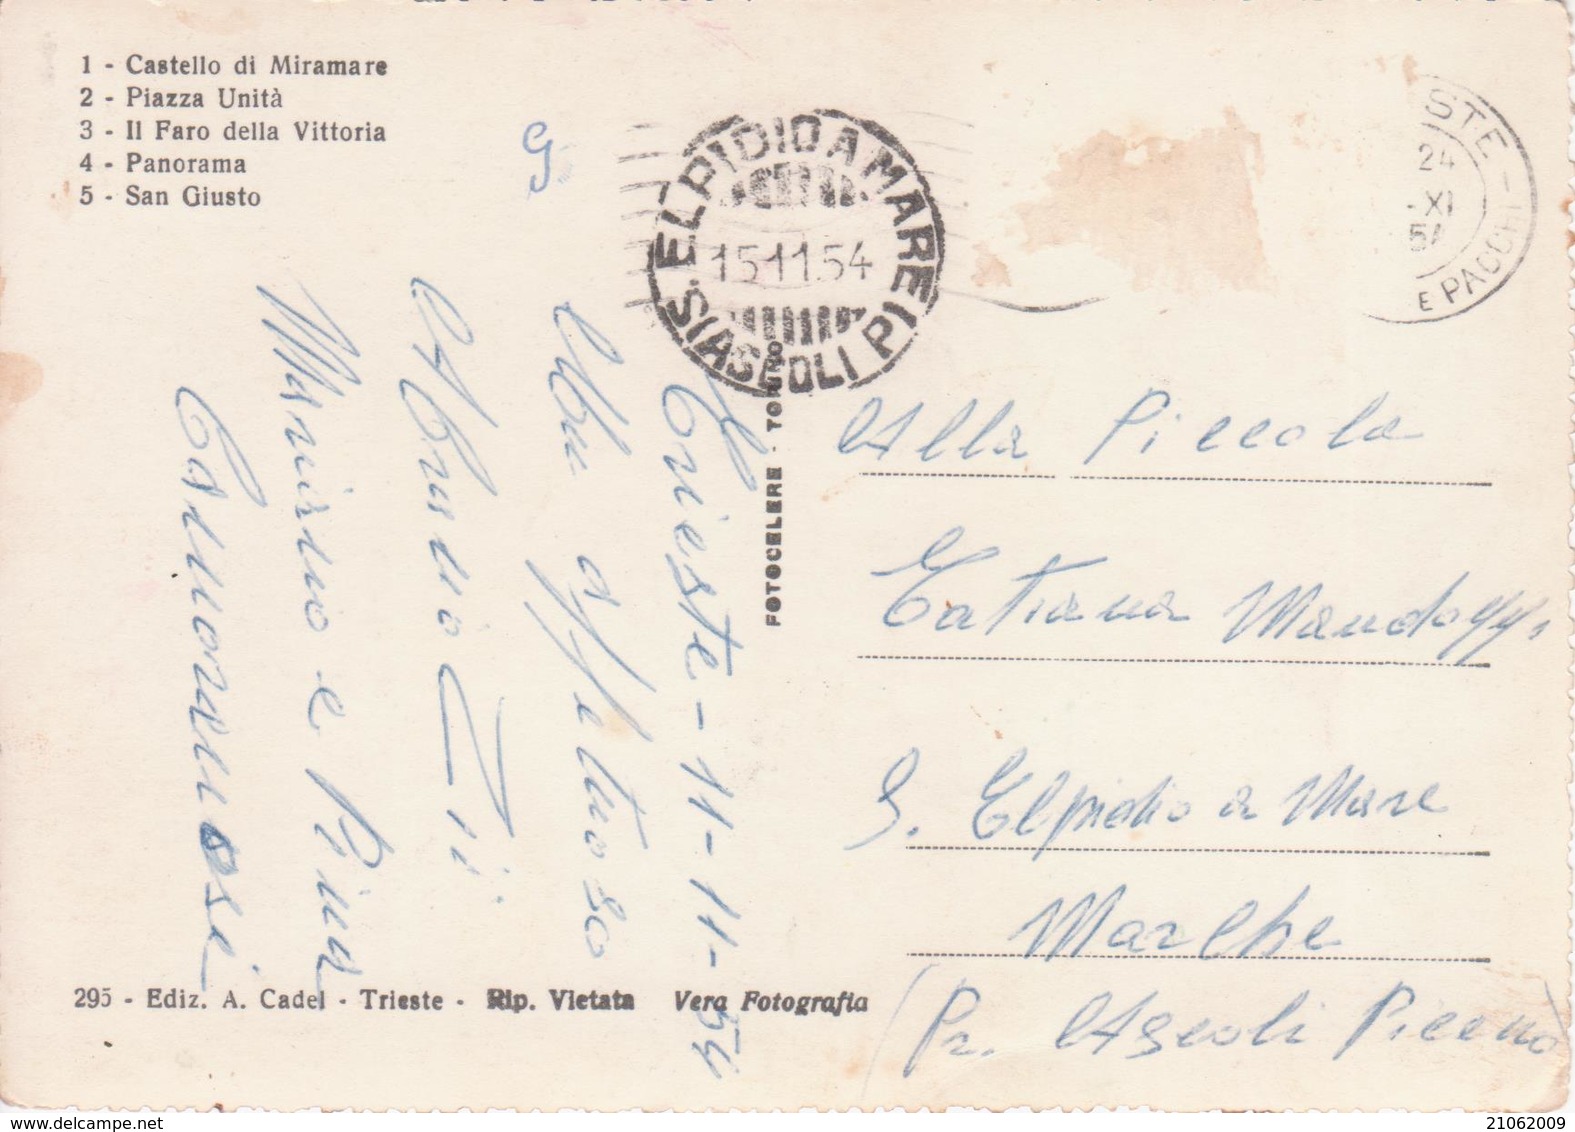 1 - Castello di Miramare
2 - Piazza Unità
3 - Il Faro della Vittoria
4 - Panorama
5 - San Giusto
G
S. ELPIDIO A MARE
15.11.54
ASCOLI PI
STE -
24
- XI
54
E PACCHI
Trieste - 11 - 11 - 54
Un affettuoso
Abbraccio Zii
e Pina
FOTOCELERE - TORINO
Alla Piccola
Tatiana Mandolffi
S. Elpidio a Mare
Marche
(Pr. Ascoli Piceno)
295 - Ediz. A. Cadel - Trieste - Rip. Vietata Vera Fotografia
www.delcampe.net
21062009